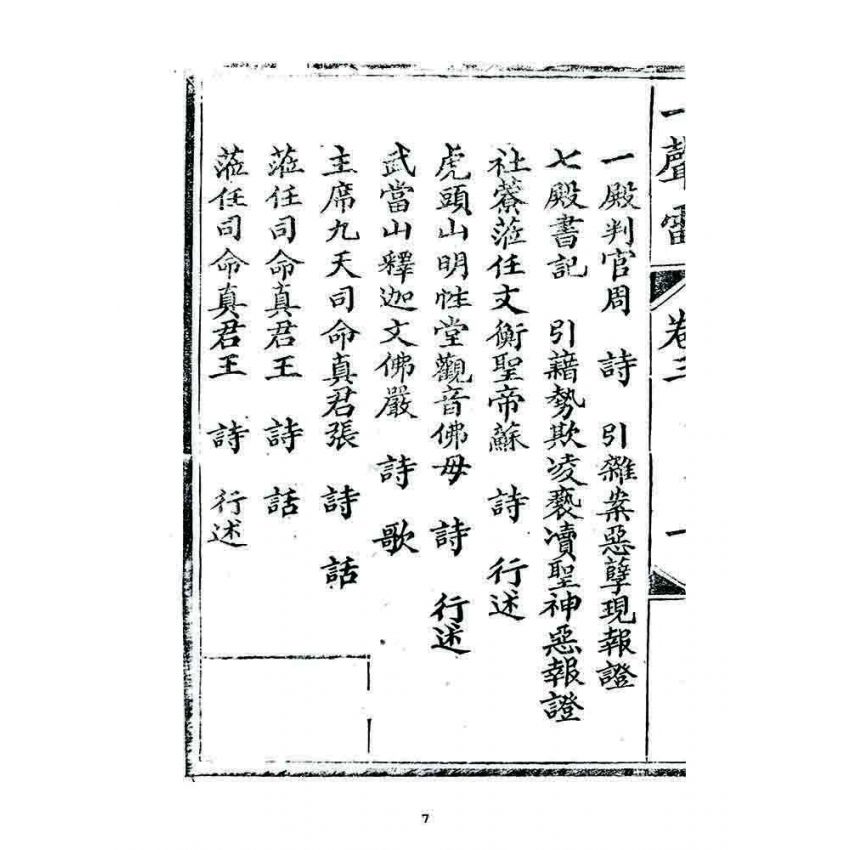 一聲雷 卷三 一
一殿判官周 詩 引雜案惡孽現報證
七殿書記 引藉勢欺凌褻瀆聖神惡報證
社藔蒞任文衡聖帝蘇 詩 行述
虎頭山明性堂觀音佛母 詩 行述
武當山釋迦文佛嚴 詩 歌
主席九天司命真君張 詩 話
蒞任司命真君王 詩 話
蒞任司命真君王 詩 行述
7